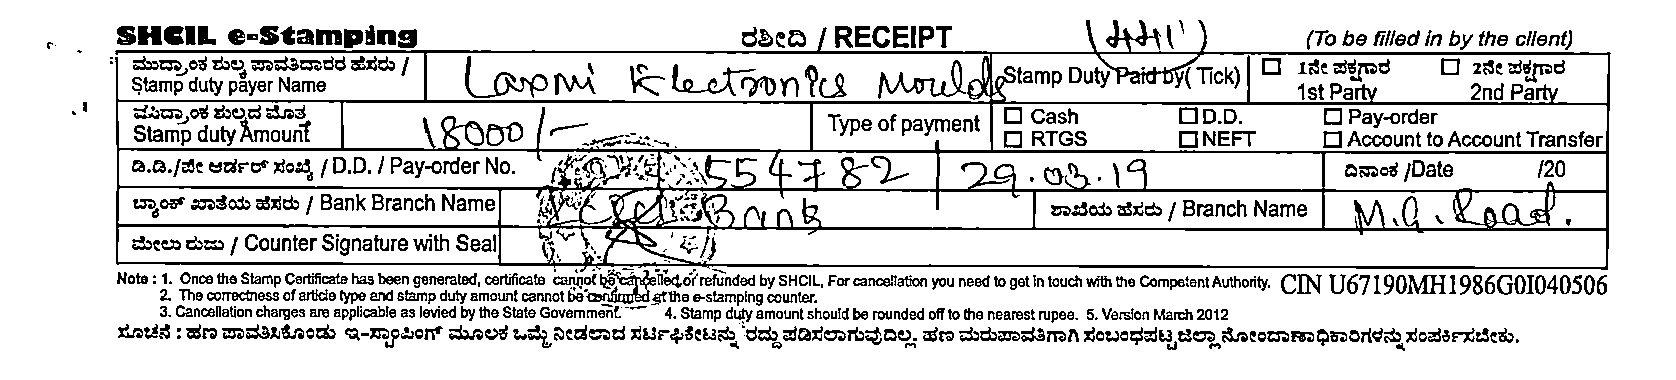 SHCIL e-Stamping ರಶೀದಿ / RECEIPT (To be filled in by the client)
ಮುದ್ರಾಂಕ ಶುಲ್ಕ ಪಾವತಿದಾರರ ಹೆಸರು / Stamp duty payer Name Laxmi Electronics Moulds Stamp Duty Paid by( Tick) ☐ 1ನೇ ಪಕ್ಷಗಾರ 1st Party ☐ 2ನೇ ಪಕ್ಷಗಾರ 2nd Party
ಮುದ್ರಾಂಕ ಶುಲ್ಕದ ಮೊತ್ತ Stamp duty Amount 18000/- Type of payment ☐ Cash ☐ D.D. ☐ Pay-order
☐ RTGS ☐ NEFT ☐ Account to Account Transfer
ಡಿ.ಡಿ./ಪೇ ಆರ್ಡರ್ ಸಂಖ್ಯೆ / D.D. / Pay-order No. 554782 29.03.19 ದಿನಾಂಕ /Date /20
ಬ್ಯಾಂಕ್ ಖಾತೆಯ ಹೆಸರು / Bank Branch Name Bank ಶಾಖೆಯ ಹೆಸರು / Branch Name M.G. Road.
ಮೇಲು ರುಜು / Counter Signature with Seal
Note : 1. Once the Stamp Certificate has been generated, certificate cannot be cancelled or refunded by SHCIL, For cancellation you need to get in touch with the Competent Authority. CIN U67190MH1986G0I040506
2. The correctness of article type and stamp duty amount cannot be confirmed at the e-stamping counter.
3. Cancellation charges are applicable as levied by the State Government. 4. Stamp duty amount should be rounded off to the nearest rupee. 5. Version March 2012
ಸೂಚನೆ : ಹಣ ಪಾವತಿಸಿಕೊಂಡು ಇ-ಸ್ಟಾಂಪಿಂಗ್ ಮೂಲಕ ಒಮ್ಮೆ ನೀಡಲಾದ ಸರ್ಟಿಫಿಕೇಟನ್ನು ರದ್ದು ಪಡಿಸಲಾಗುವುದಿಲ್ಲ. ಹಣ ಮರುಪಾವತಿಗಾಗಿ ಸಂಬಂಧಪಟ್ಟ ಜಿಲ್ಲಾ ನೋಂದಣಾಧಿಕಾರಿಗಳನ್ನು ಸಂಪರ್ಕಿಸಬೇಕು.